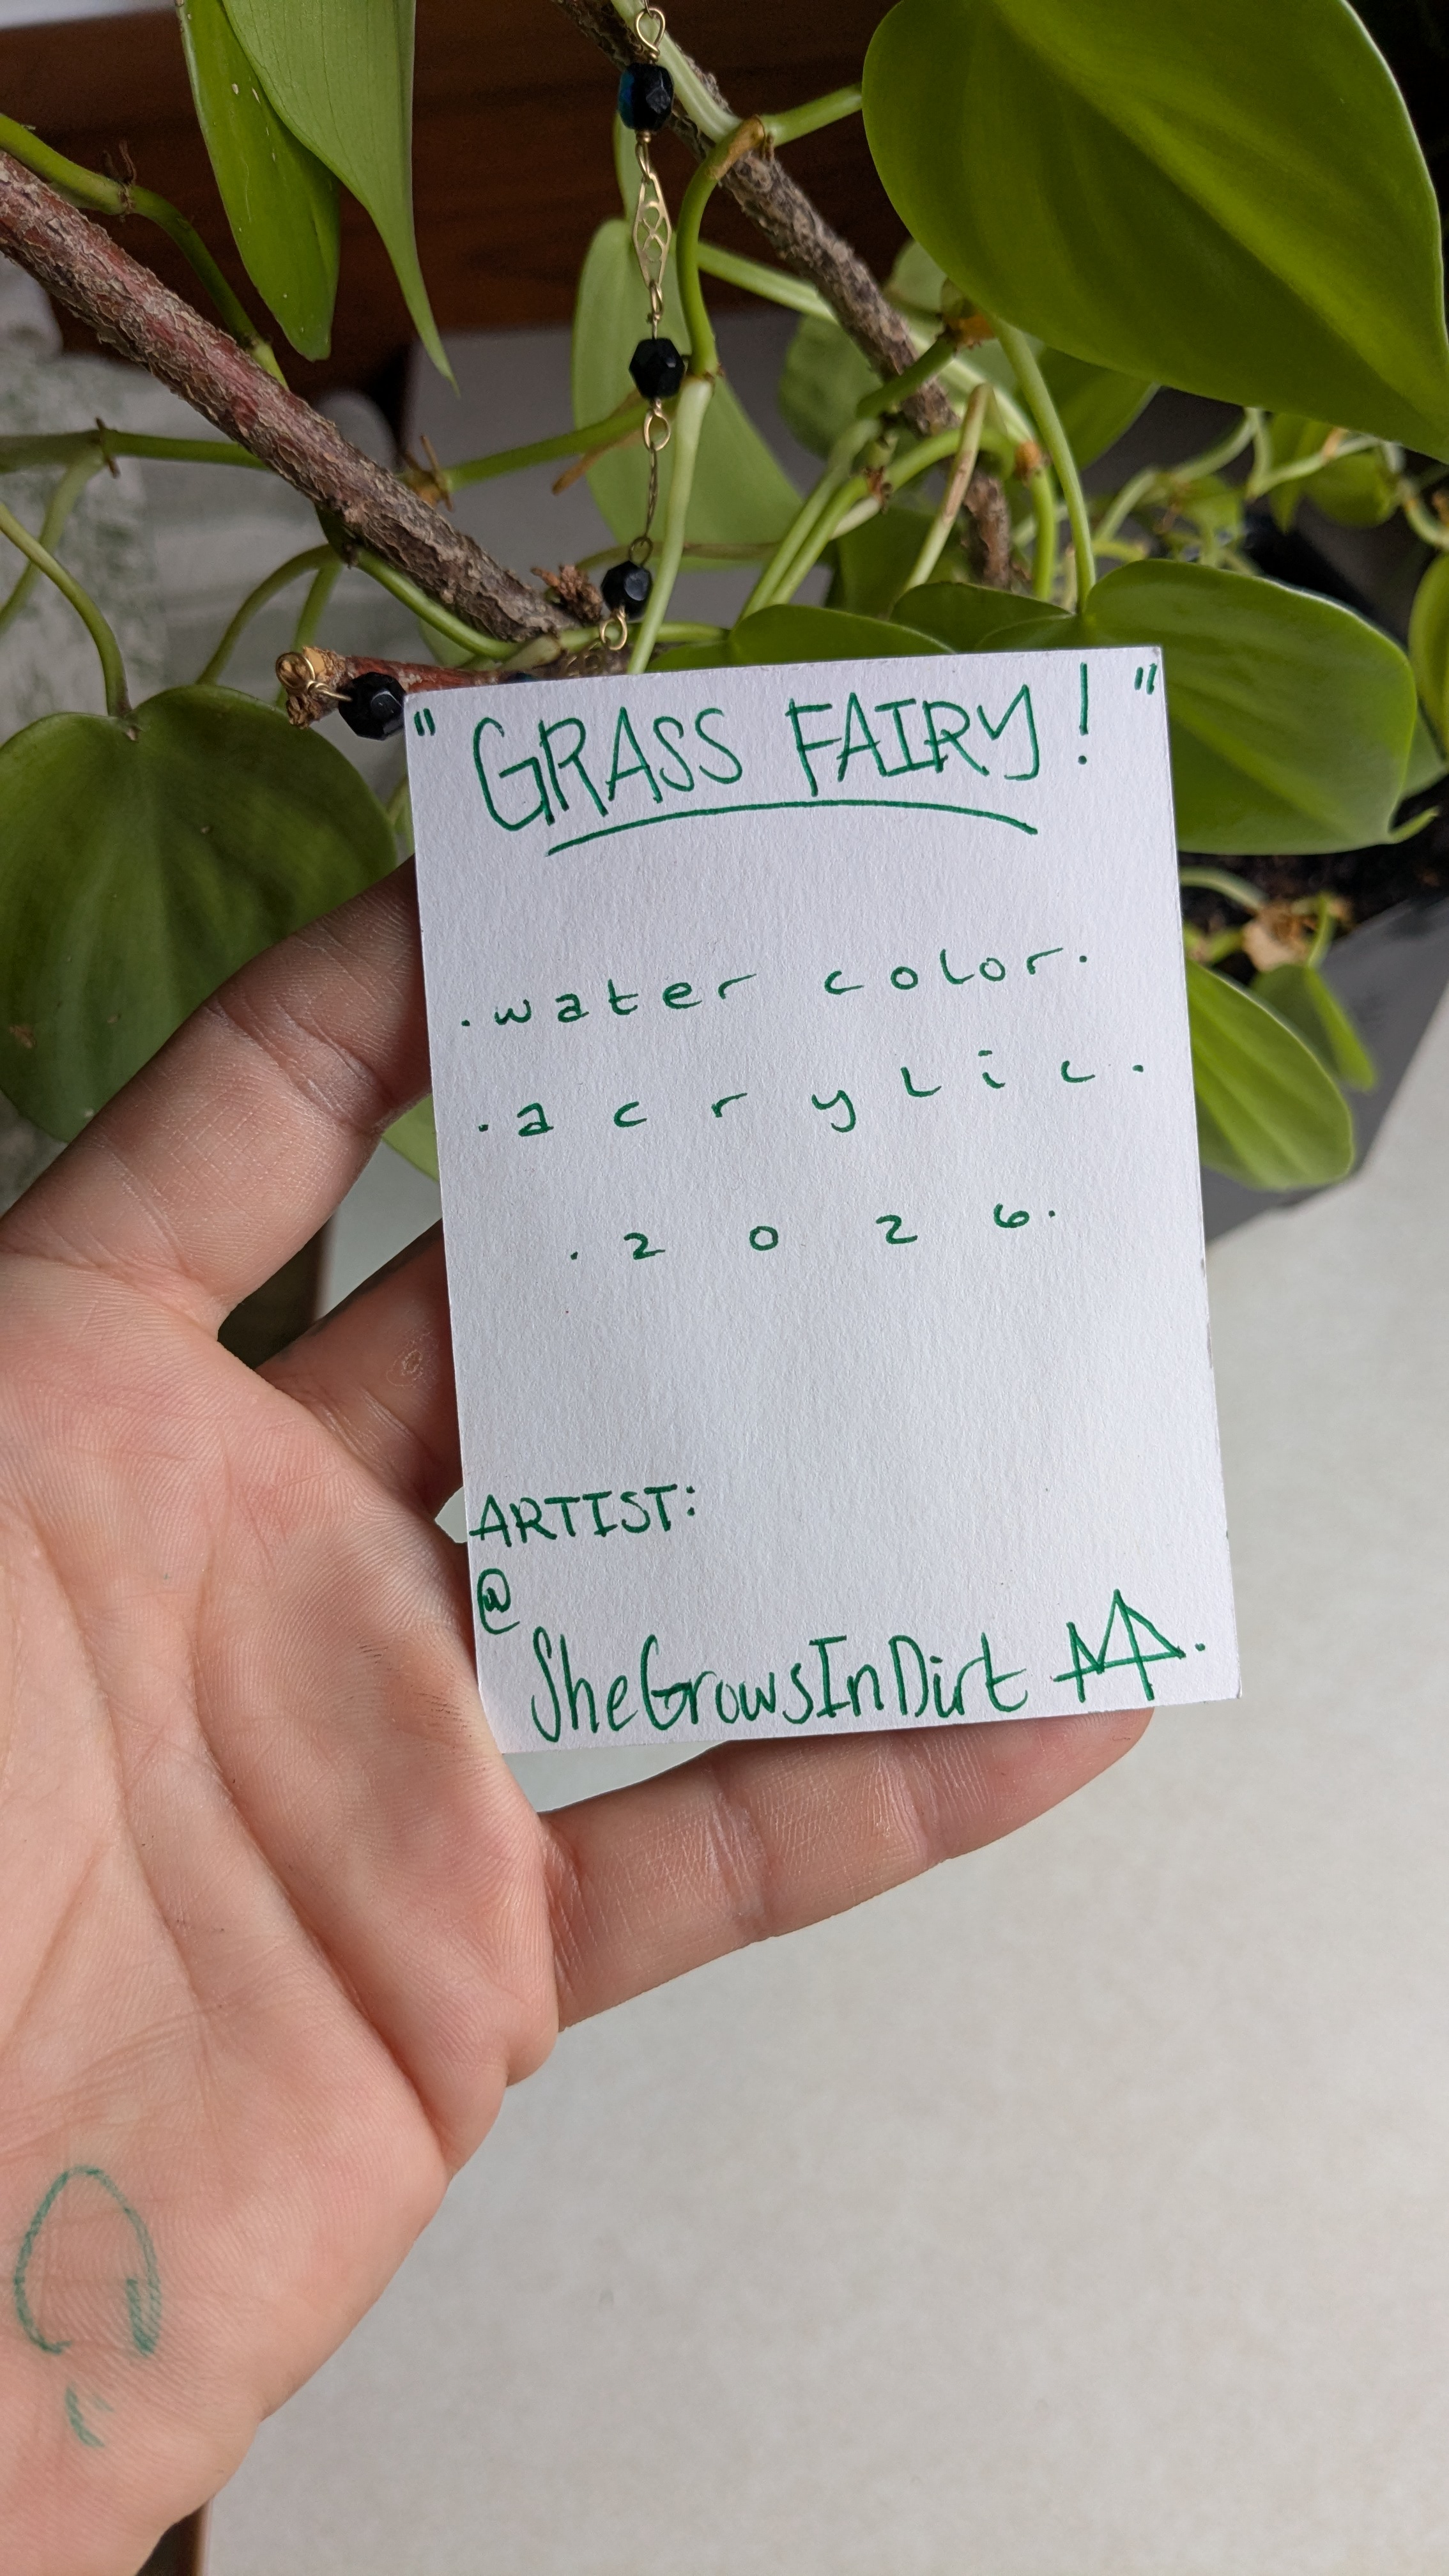 "GRASS FAIRY!"
.water color.
.acrylic.
.2026.
ARTIST:
@
SheGrowsInDirt